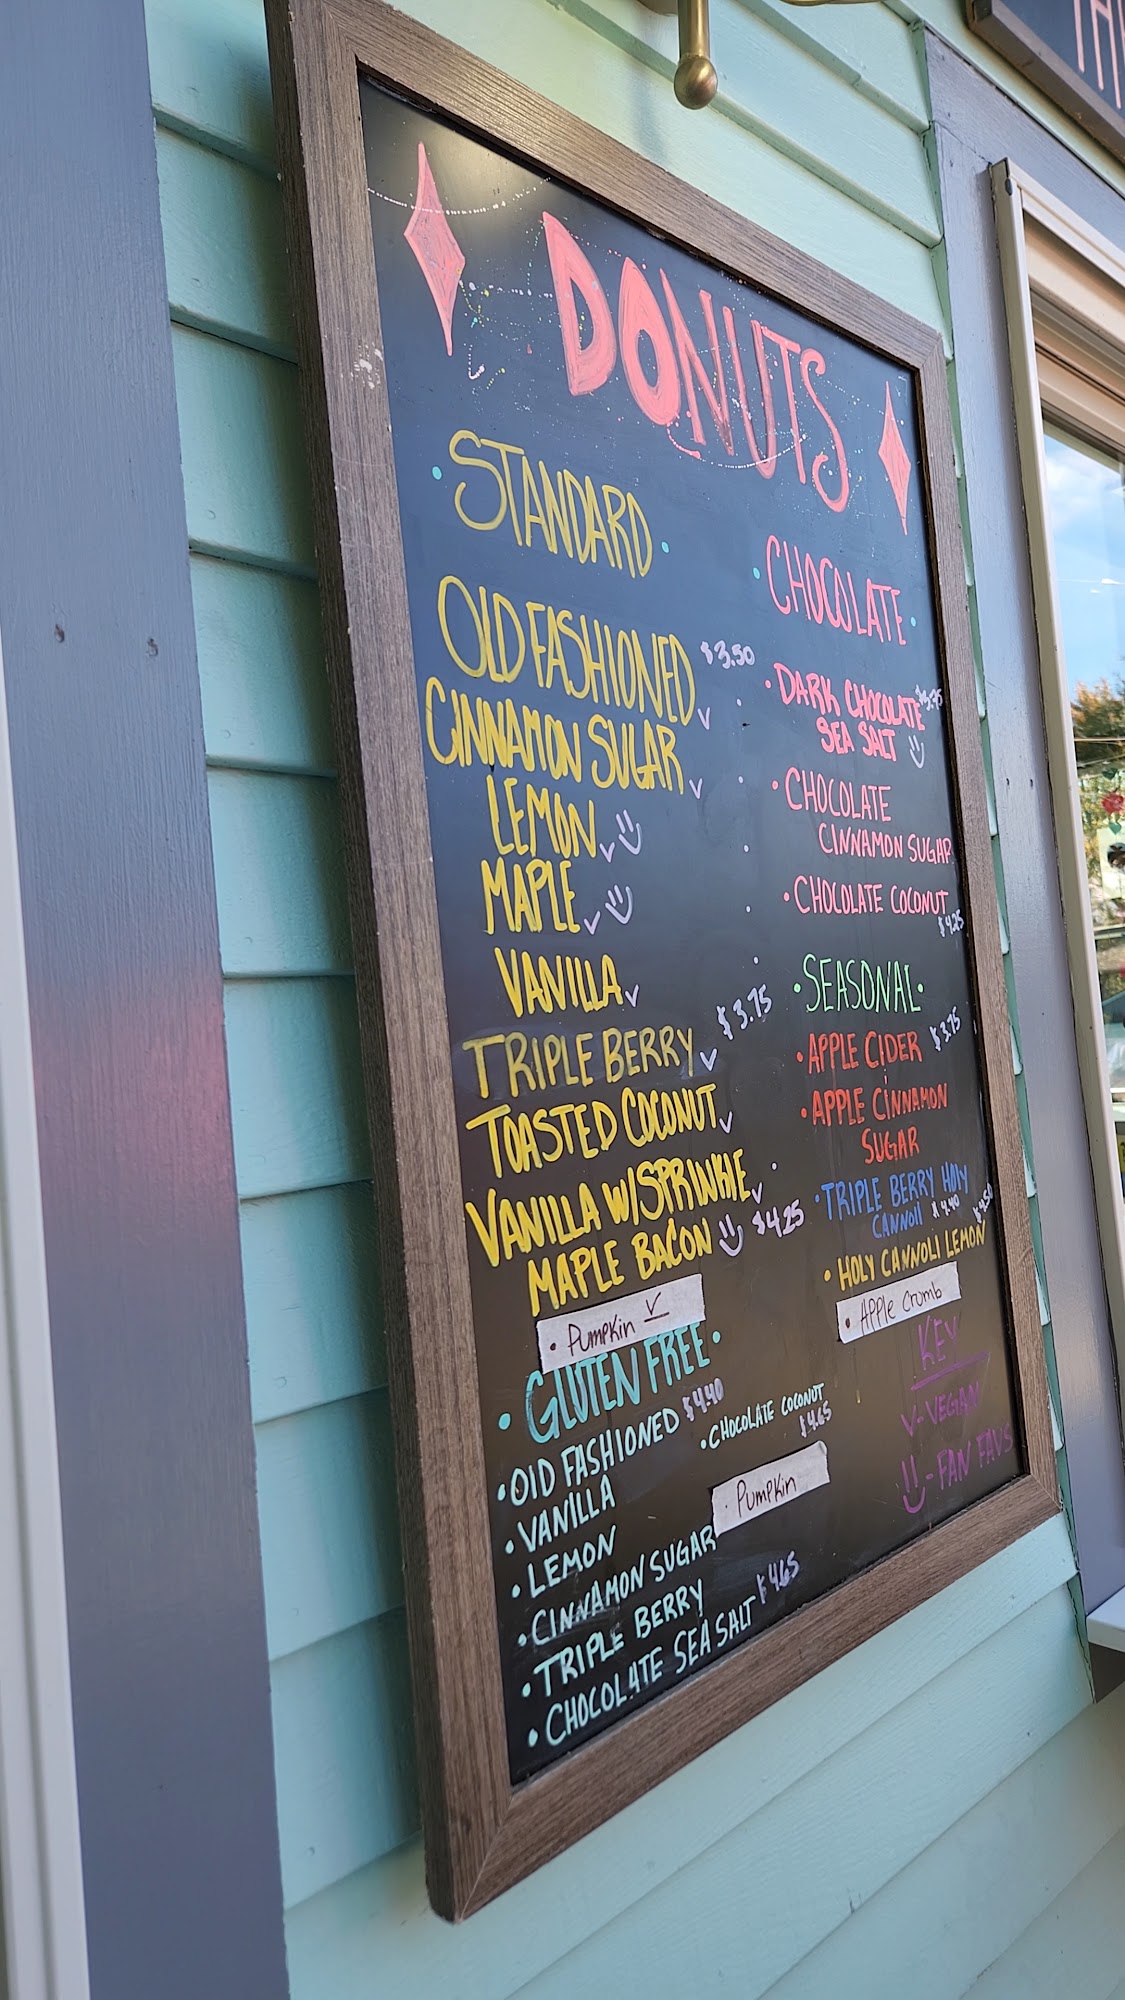 DONUTS
STANDARD
OLD FASHIONED $3.50 V
CINNAMON SUGAR V
LEMON V
MAPLE V
VANILLA V
$3.75
TRIPLE BERRY V
TOASTED COCONUT V
VANILLA W/SPRINKLE V
MAPLE BACON $4.25
• Pumpkin V
• GLUTEN FREE •
• OLD FASHIONED $4.40
• VANILLA
• LEMON
• CINNAMON SUGAR
• TRIPLE BERRY
• CHOCOLATE SEA SALT $4.65
• CHOCOLATE COCONUT
$4.65
• Pumpkin
• CHOCOLATE •
• DARK CHOCOLATE $3.75
SEA SALT
• CHOCOLATE
CINNAMON SUGAR
• CHOCOLATE COCONUT
$4.25
• SEASONAL •
• APPLE CIDER $3.75
• APPLE CINNAMON
SUGAR
• TRIPLE BERRY HOLY
CANNOLI $4.40 $4.50
• HOLY CANNOLI LEMON
• Apple Crumb
KEY
V - VEGAN
- FAN FAVS